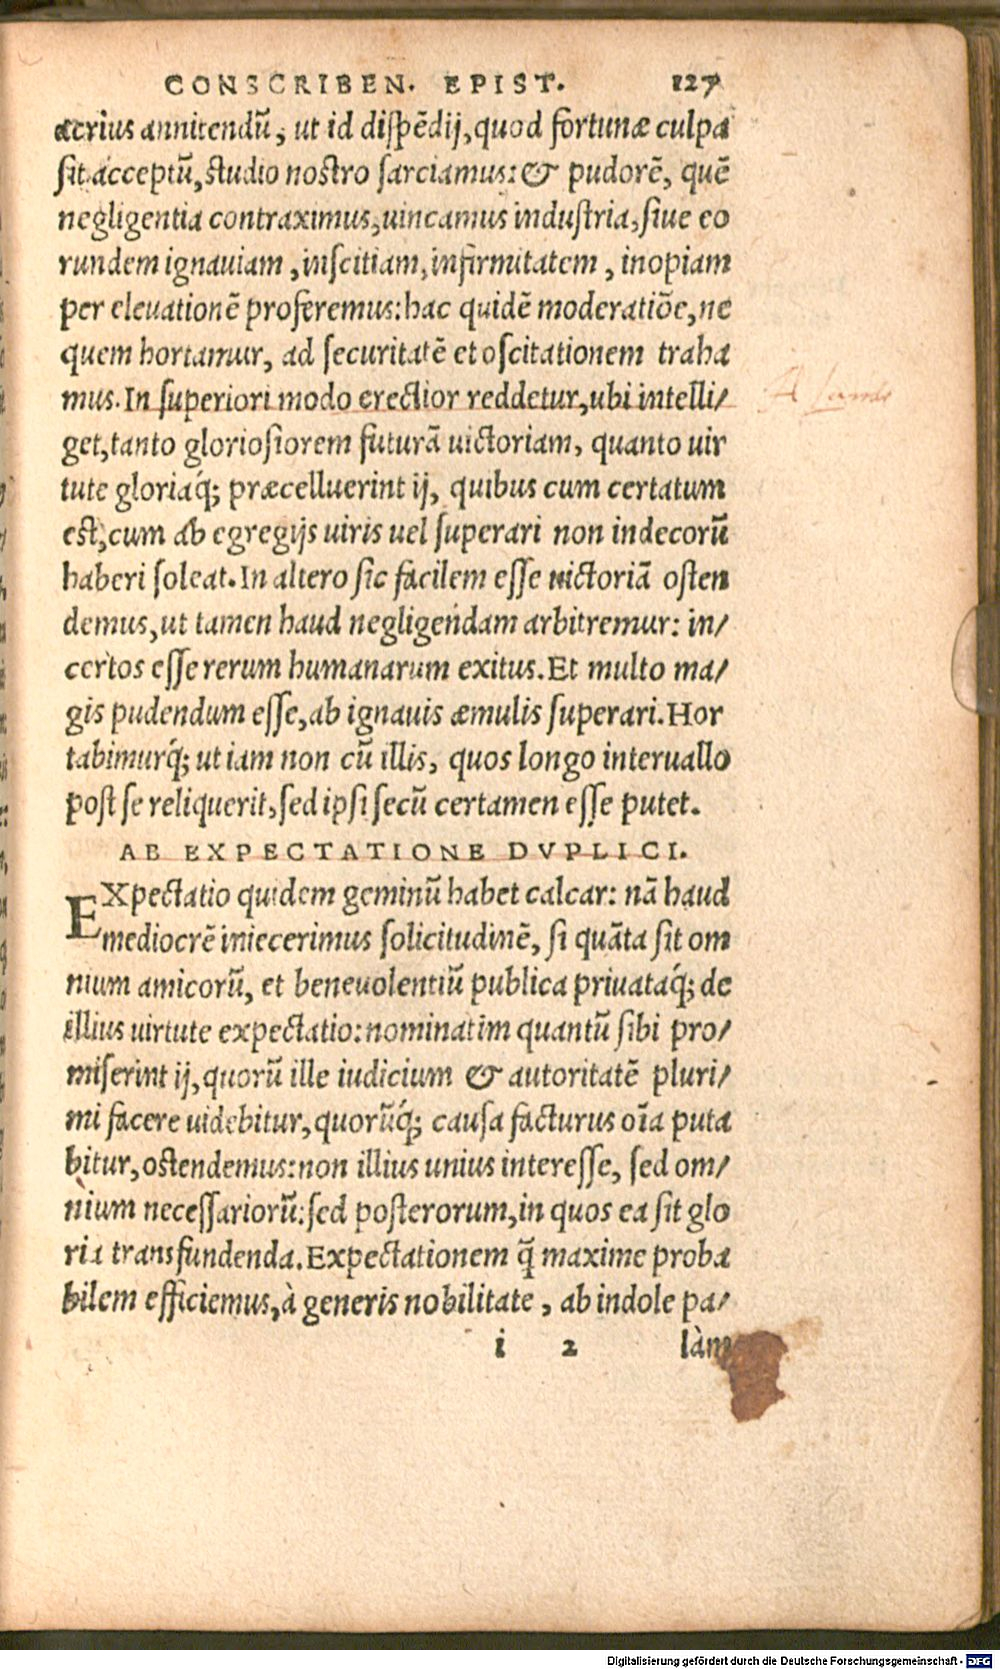 CONSCRIBEN. EPIST. 127
acrius annitendū, ut id dispēdij, quod fortunæ culpa
sit acceptū, studio nostro sarciamus: & pudorē, quē
negligentia contraximus, uincamus industria, siue eo
rundem ignauiam, inscitiam, infirmitatem, inopiam
per eleuationē proferemus: hac quidē moderatiōe, ne
quem hortamur, ad securitatē et oscitationem traha
mus. In superiori modo erectior reddetur, ubi intelli/
get, tanto gloriosiorem futurā uictoriam, quanto uir
tute gloriaq́; præcelluerint ij, quibus cum certatum
est, cum ab egregijs uiris uel superari non indecorū
haberi soleat. In altero sic facilem esse uictoriā osten
demus, ut tamen haud negligendam arbitremur: in/
certos esse rerum humanarum exitus. Et multo ma/
gis pudendum esse, ab ignauis æmulis superari. Hor
tabimurq́; ut iam non cū illis, quos longo interuallo
post se reliquerit, sed ipsi secū certamen esse putet.
AB EXPECTATIONE DVPLICI.
EXpectatio quidem geminū habet calcar: nā haud
mediocrē iniecerimus solicitudinē, si quāta sit om
nium amicorū, et beneuolentiū publica priuataq́; de
illius uirtute expectatio: nominatim quantū sibi pro/
miserint ij, quorū ille iudicium & autoritatē pluri/
mi facere uidebitur, quorūq́; causa facturus oīa puta
bitur, ostendemus: non illius unius interesse, sed om/
nium necessariorū: sed posterorum, in quos ea sit glo
ria transfundenda. Expectationem q̄ maxime proba
bilem efficiemus, à generis nobilitate, ab indole pa/
i 2 làm
Digitalisierung gefördert durch die Deutsche Forschungsgemeinschaft - DFG